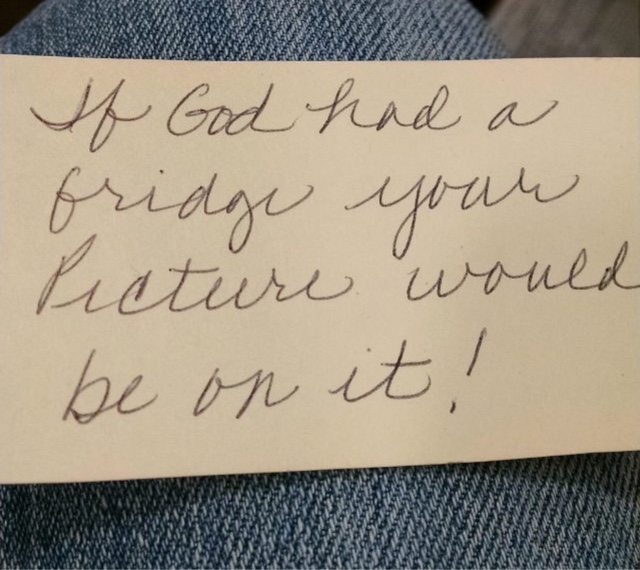 If God had a
fridge your
Picture would
be on it!